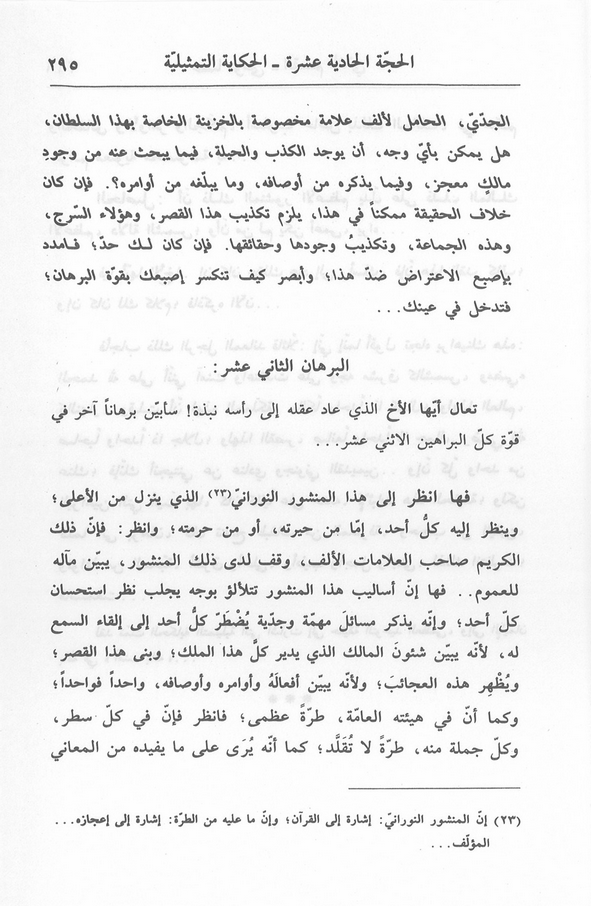 الحجّة الحادية عشرة - الحكاية التمثيليّة ٢٩٥
الجدّيّ، الحامل لألف علامة مخصوصة بالخزينة الخاصة بهذا السلطان،
هل يمكن بأيّ وجه، أن يوجد الكذب والحيلة، فيما يبحث عنه من وجودِ
مالكٍ معجز، وفيما يذكره من أوصافه، وما يبلّغه من أوامره؟. فإن كان
خلاف الحقيقة ممكناً في هذا، يلزم تكذيب هذا القصر، وهؤلاء السّرج،
وهذه الجماعة، وتكذيبُ وجودها وحقائقها. فإن كان لك حدّ؛ فامدد
بإصبع الاعتراض ضدّ هذا؛ وأبصر كيف تنكسر إصبعك بقوّة البرهان؛
فتدخل في عينك...
البرهان الثاني عشر:
تعال أيّها الأخ الذي عاد عقله إلى رأسه نبذة! سأبيّن برهاناً آخر في
قوّة كلّ البراهين الاثني عشر...
فها انظر إلى هذا المنشور النورانيّ(٢٣) الذي ينزل من الأعلى؛
وينظر إليه كلُّ أحد، إمّا من حيرته، أو من حرمته؛ وانظر: فإنّ ذلك
الكريم صاحب العلامات الألف، وقف لدى ذلك المنشور، يبيّن مآله
للعموم.. فها إنّ أساليب هذا المنشور تتلألؤ بوجه يجلب نظر استحسان
كلّ أحد؛ وإنّه يذكر مسائلَ مهمّة وجدّية يُضْطَرّ كلُّ أحد إلى إلقاء السمع
له، لأنّه يبيّن شئونَ المالك الذي يدير كلَّ هذا الملك؛ وبنى هذا القصر؛
ويُظْهِر هذه العجائبَ؛ ولأنّه يبيّن أفعالَهُ وأوامره وأوصافه، واحداً فواحداً؛
وكما أنّ في هيئته العامّة، طرّةً عظمى؛ فانظر فإنّ في كلّ سطر،
وكلّ جملة منه، طرّةً لا تُقَلَّد؛ كما أنّه يُرَى على ما يفيده من المعاني
(٢٣) إنّ المنشور النورانيّ: إشارة إلى القرآن؛ وإنّ ما عليه من الطرّة: إشارة إلى إعجازه...
المؤلّف...